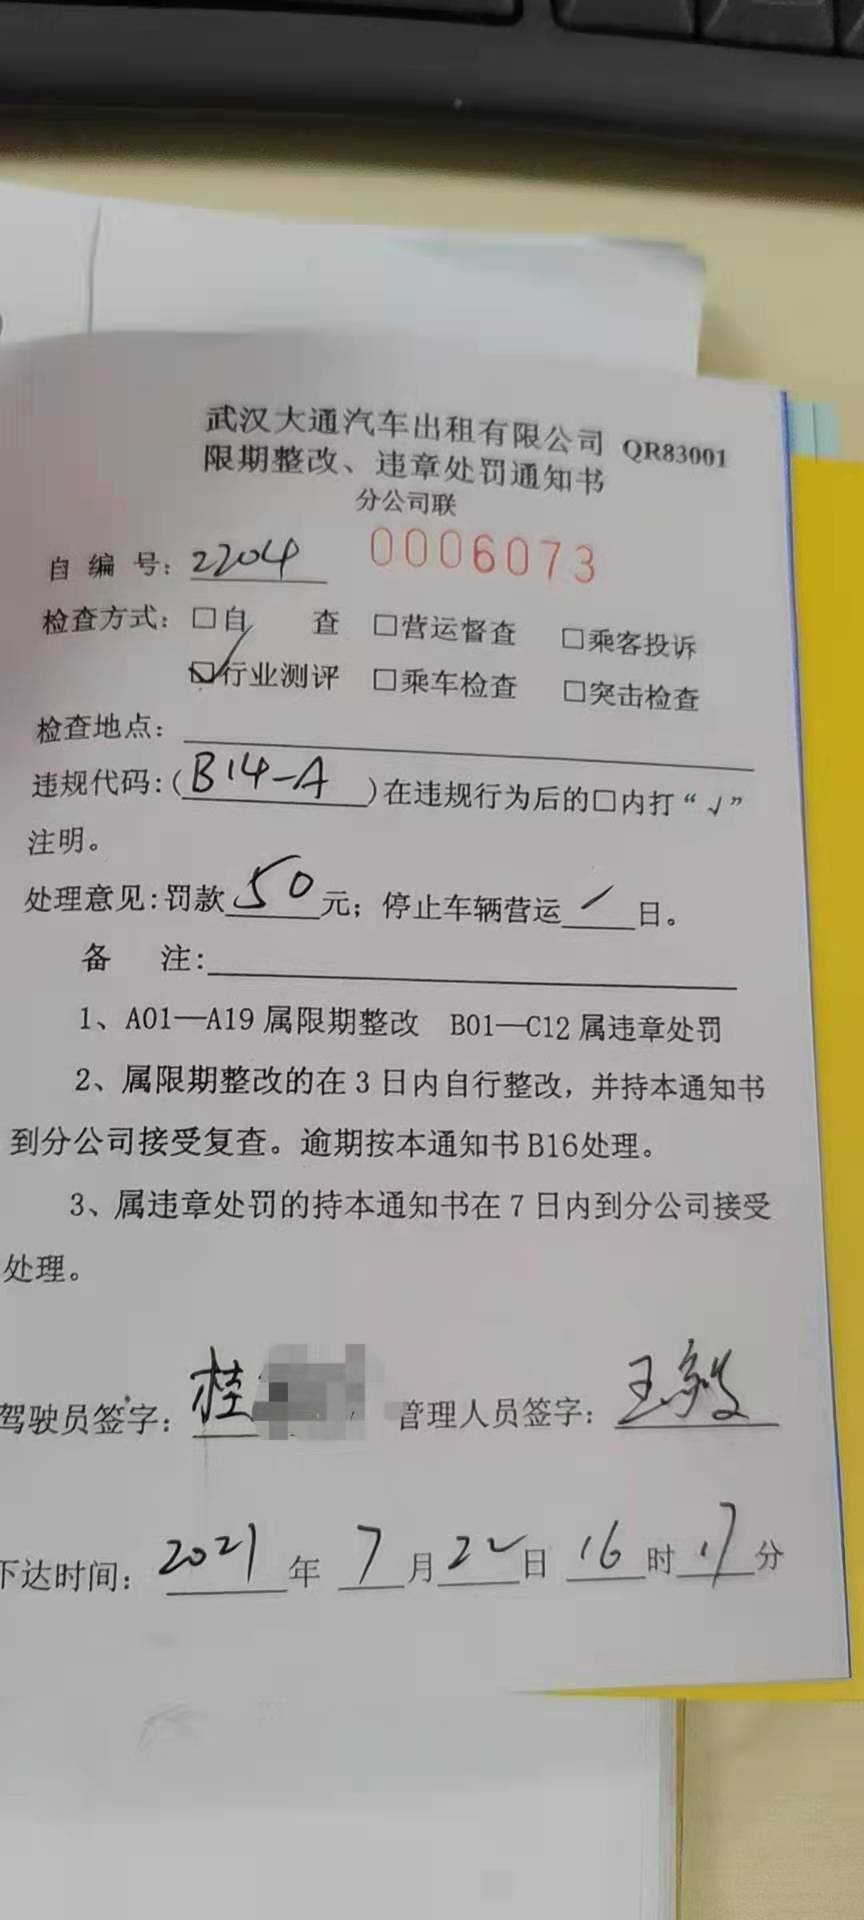 武汉大通汽车出租有限公司 QR83001
限期整改、违章处罚通知书
分公司联
自 编 号：2204 0006073
检查方式：□自 查 □营运督查 □乘客投诉
☑行业测评 □乘车检查 □突击检查
检查地点：
违规代码：(B14-A)在违规行为后的□内打“√”
注明。
处理意见：罚款50元；停止车辆营运/日。
备 注：
1、A01—A19属限期整改 B01—C12属违章处罚
2、属限期整改的在3日内自行整改，并持本通知书
到分公司接受复查。逾期按本通知书B16处理。
3、属违章处罚的持本通知书在7日内到分公司接受
处理。
驾驶员签字：桂 管理人员签字：王毅
下达时间：2021年7月22日16时17分